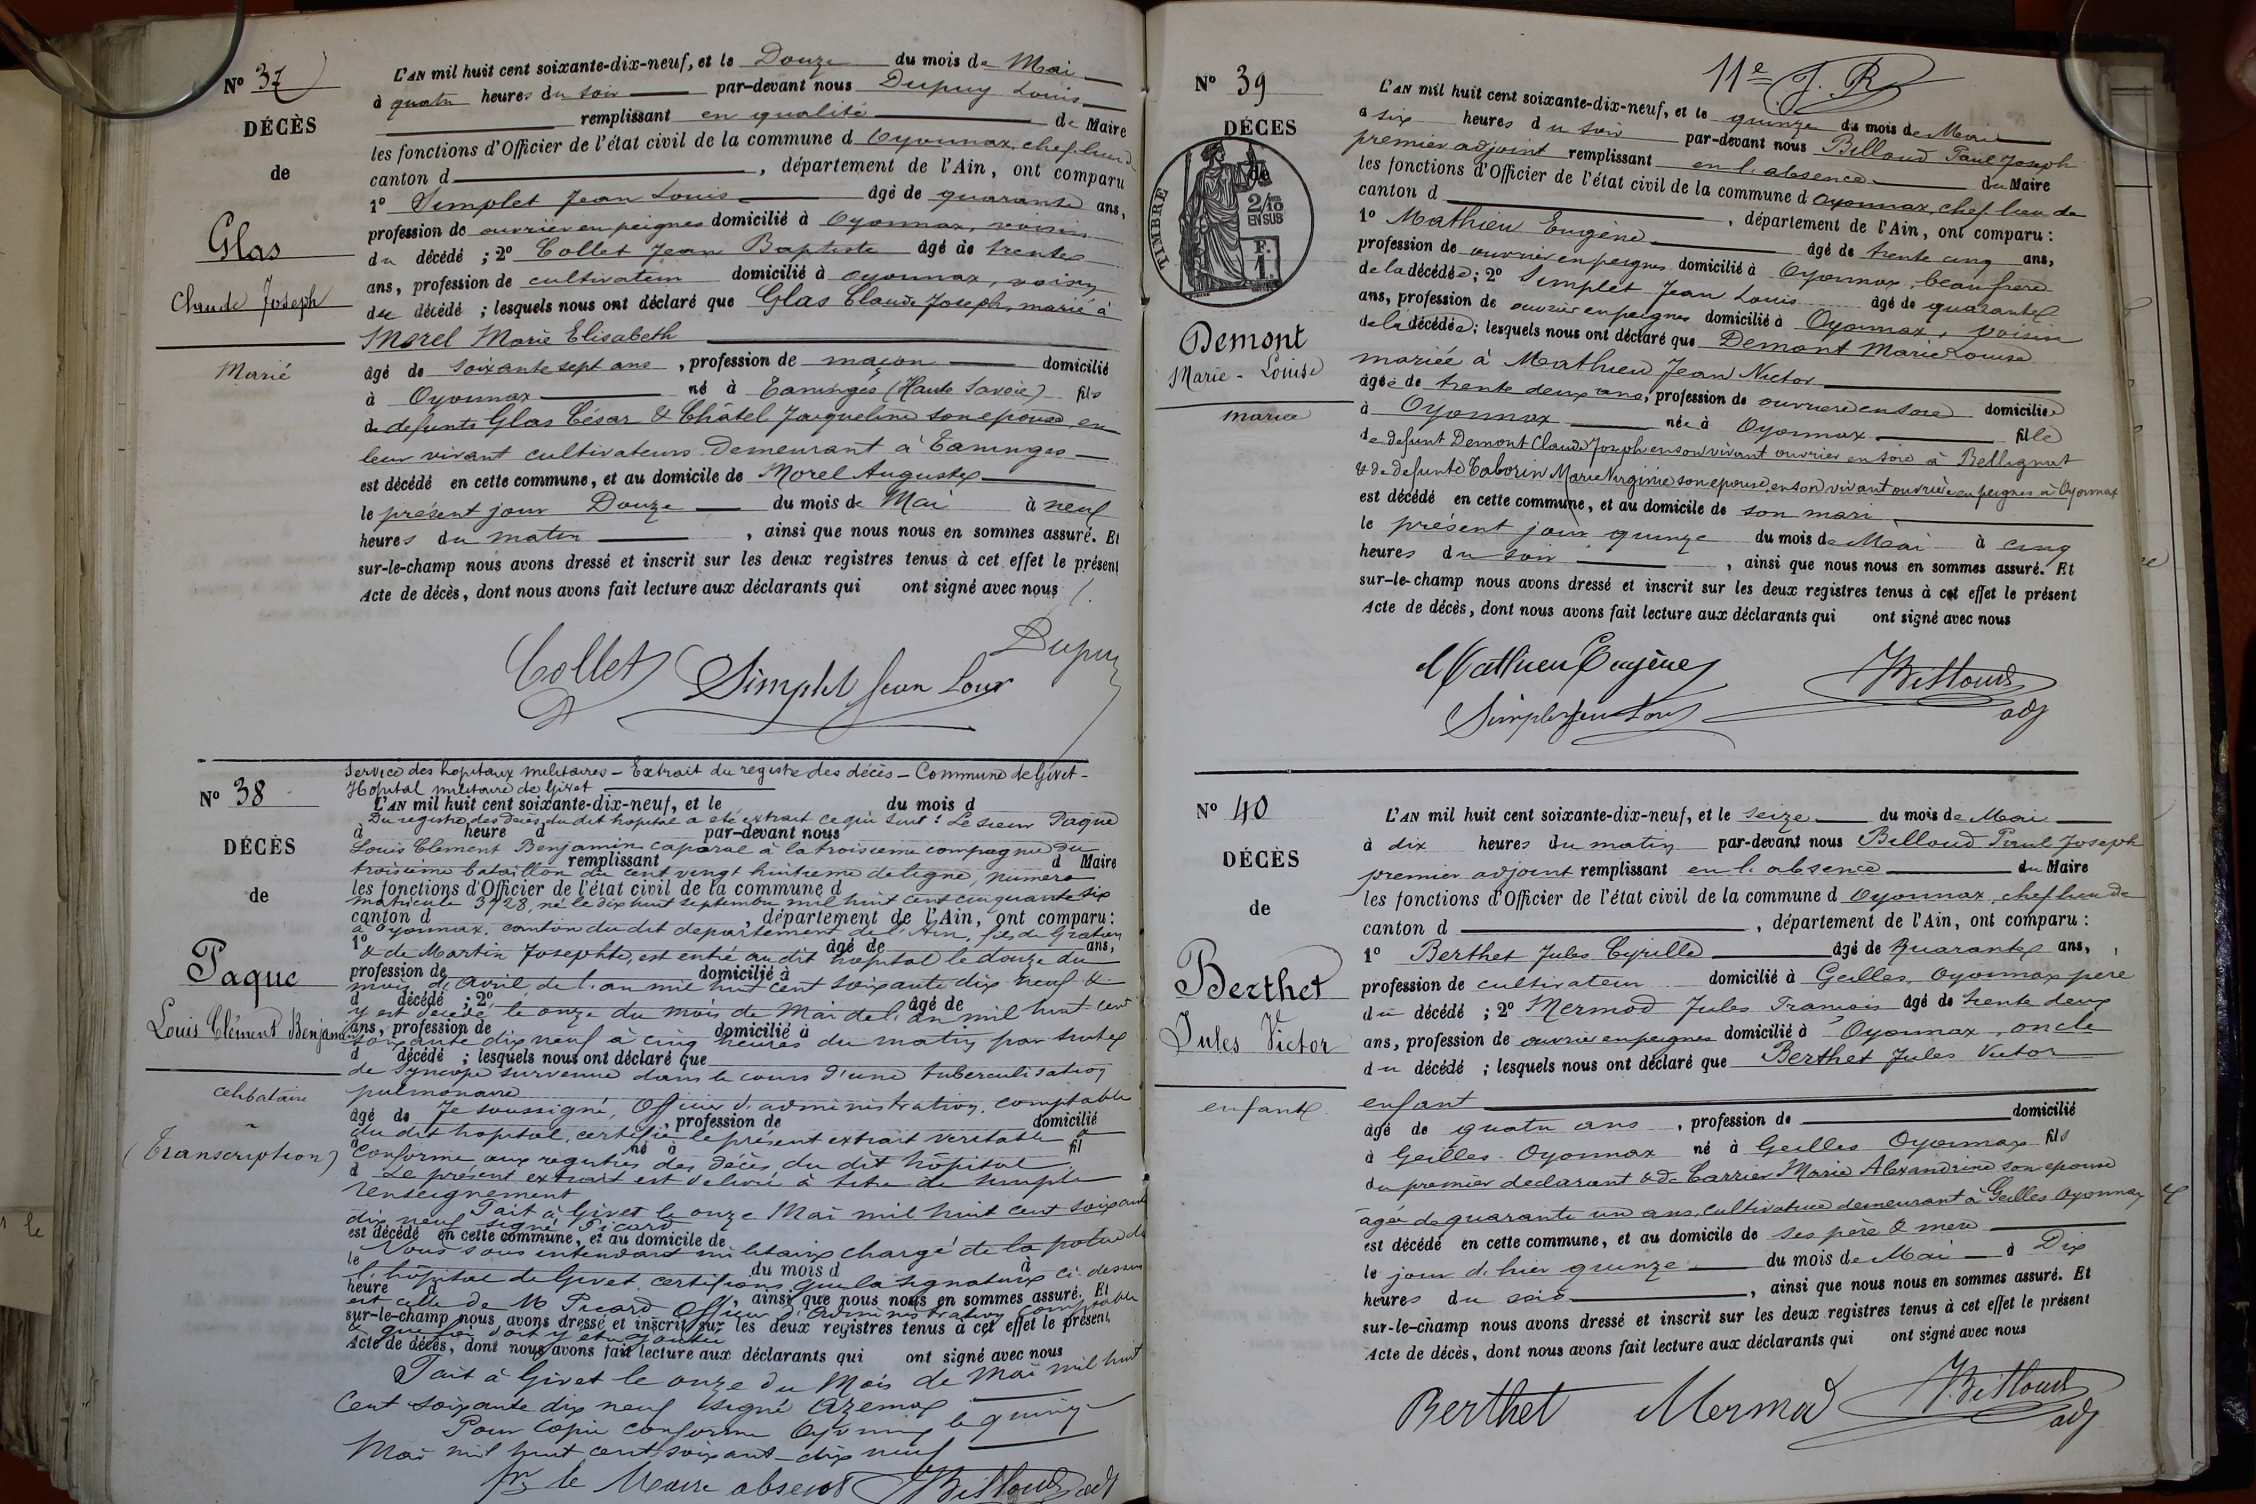 N° 37
DÉCÈS
de
Glas
Claude Joseph
Marié
L'AN mil huit cent soixante-dix-neuf, et le Douze du mois de Mai
à quatre heures du soir par-devant nous Dupuy Louis
remplissant en qualité de Maire
les fonctions d'Officier de l'état civil de la commune d Oyonnax, chef lieu de
canton d , département de l'Ain, ont comparu
1° Simplet Jean Louis âgé de quarante ans,
profession de ouvrier en peignes domicilié à Oyonnax, voisin
du décédé ; 2° Collet Jean Baptiste âgé de trente
ans, profession de cultivateur domicilié à Oyonnax, voisin
du décédé ; lesquels nous ont déclaré que Glas Claude Joseph, marié à
Morel Marie Elisabeth
âgé de soixante sept ans , profession de maçon domicilié
à Oyonnax né à Taninges (Haute Savoie) fils
de defunts Glas César & Châtel Jacqueline son epouse, en
leur vivant cultivateurs Demeurant à Taninges
est décédé en cette commune, et au domicile de Morel Auguste
le présent jour Douze du mois de Mai à neuf
heures du matin , ainsi que nous nous en sommes assuré. Et
sur-le-champ nous avons dressé et inscrit sur les deux registres tenus à cet effet le présent
Acte de décès, dont nous avons fait lecture aux déclarants qui ont signé avec nous /.
Dupuy
Collet Simplet Jean Louis
N° 38
DÉCÈS
de
Paque
Louis Clément Benjamin
celibataire
(Transcription)
Service des hopitaux militaires - Extrait du registre des décès - Commune de Givet -
Hopital militaire de Givet
L'AN mil huit cent soixante-dix-neuf, et le du mois d
Du registre des décès du dit hopital a été extrait ce qui suit : Le sieur Paque
à heure d par-devant nous
Louis Clement Benjamin caporal à la troisieme compagnie du
remplissant d Maire
troisieme bataillon du cent vingt huitieme de ligne, numero
les fonctions d'Officier de l'état civil de la commune d
matricule 3728, né le dix huit septembre mil huit cent cinquante six
canton d , département de l'Ain, ont comparu :
à Oyonnax, canton du dit departement de l'Ain, fils de Gratien
1° âgé de ans,
& de Martin Josephte, est entré au dit hopital le douze du
profession de domicilié à
mois d'avril de l'an mil huit cent soixante dix neuf &
d décédé ; 2° âgé de
y est décédé le onze du mois de Mai de l'an mil huit cent
ans, profession de domicilié à
soixante dix neuf à cinq heures du matin par suite
d décédé ; lesquels nous ont déclaré que
de syncope survenue dans le cours d'une tuberculisation
pulmonaire
Je soussigné, Officier d'administration comptable
âgé de , profession de domicilié
du dit hopital, certifie le présent extrait veritable &
à né à fil
conforme aux registres des décès du dit hôpital
d Le présent extrait est delivré à titre de simple
renseignement
Fait à Givet le onze Mai mil huit cent soixante
dix neuf signé Picard
est décédé en cette commune, et au domicile de
Nous sous intendant militaire chargé de la police de
le du mois d à
l'hôpital de Givet certifions que la signature ci dessus
heure d , ainsi que nous nous en sommes assuré. Et
est celle de Mr Picard Officier d'Administration comptable
sur-le-champ nous avons dressé et inscrit sur les deux registres tenus à cet effet le présent
& que foi doit y etre ajoutée
Acte de décès, dont nous avons fait lecture aux déclarants qui ont signé avec nous
Fait à Givet le onze du Mois de Mai mil huit
Cent soixante dix neuf signé Azemar
Pour copie conforme Oyonnax le quinze
Mai mil huit cent soixante-dix neuf
Pr le Maire absent Billoud adj
11e J. R.
N° 39
DÉCES
de
TIMBRE
2/10 EN SUS
F. 1.
Demont
Marie-Louise
mariée
L'AN mil huit cent soixante-dix-neuf, et le quinze du mois de Mai
à six heures du soir par-devant nous Billoud Paul Joseph
premier adjoint remplissant en l'absence du Maire
les fonctions d'Officier de l'état civil de la commune d Oyonnax, chef lieu de
canton d , département de l'Ain, ont comparu :
1° Mathieu Eugène âgé de trente cinq ans,
profession de ouvrier en peignes domicilié à Oyonnax, beau frere
de la décédée ; 2° Simplet Jean Louis âgé de quarante
ans, profession de ouvrier en peignes domicilié à Oyonnax, voisin
de la décédée ; lesquels nous ont déclaré que Demont Marie Louise
mariée à Mathieu Jean Victor
âgée de trente deux ans, profession de ouvriere en soie domiciliée
à Oyonnax née à Oyonnax fille
de defunt Demont Claude Joseph en son vivant ouvrier en soie à Bellignat
& de defunte Taborin Marie Virginie son epouse, en son vivant ouvrière en peignes à Oyonnax
est décédé en cette commune, et au domicile de son mari
le présent jour quinze du mois de Mai à cinq
heures du soir , ainsi que nous nous en sommes assuré. Et
sur-le-champ nous avons dressé et inscrit sur les deux registres tenus à cet effet le présent
Acte de décès, dont nous avons fait lecture aux déclarants qui ont signé avec nous
Mathieu Eugène Billoud
Simplet Jean Louis adj
N° 40
DÉCÈS
de
Berthet
Jules Victor
enfant
L'AN mil huit cent soixante-dix-neuf, et le seize du mois de Mai
à dix heures du matin par-devant nous Billoud Paul Joseph
premier adjoint remplissant en l'absence du Maire
les fonctions d'Officier de l'état civil de la commune d Oyonnax, chef lieu de
canton d , département de l'Ain, ont comparu :
1° Berthet Jules Cyrille âgé de quarante ans,
profession de cultivateur domicilié à Geilles, Oyonnax père
du décédé ; 2° Mermod Jules Francois âgé de trente deux
ans, profession de ouvrier en peignes domicilié à Oyonnax, oncle
du décédé ; lesquels nous ont déclaré que Berthet Jules Victor
enfant
âgé de quatre ans , profession de domicilié
à Geilles-Oyonnax né à Geilles Oyonnax fils
du premier declarant & de Carrier Marie Alexandrine son epouse
agée de quarante un ans, cultivatrice demeurant à Geilles Oyonnax
est décédé en cette commune, et au domicile de ses père & mere
le jour d'hier quinze du mois de Mai à Dix
heures du soir , ainsi que nous nous en sommes assuré. Et
sur-le-champ nous avons dressé et inscrit sur les deux registres tenus à cet effet le présent
Acte de décès, dont nous avons fait lecture aux déclarants qui ont signé avec nous
Berthet Mermod Billoud
adj